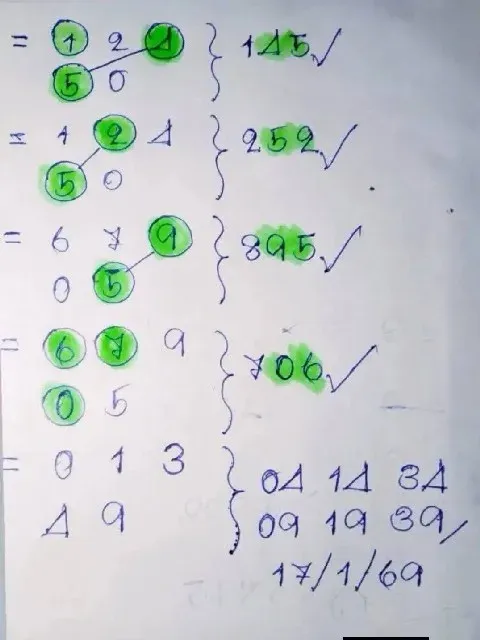 = 1 2 4 } 145 ✓
5 0
= 1 2 4 } 252 ✓
5 0
= 6 7 9 } 895 ✓
0 5
= 6 7 9 } 706 ✓
0 5
= 0 1 3 } 04 14 34
4 9 09 19 39 /
17/1/69